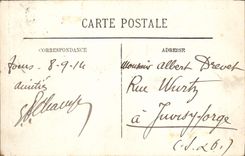 CARTE POSTALE
CORRESPONDANCE
ADRESSE
Tours 8-9-14
Amitiés
Monsieur Albert Drevet
Rue Wurtz
à Juvisy-sorge
(S. & O.)